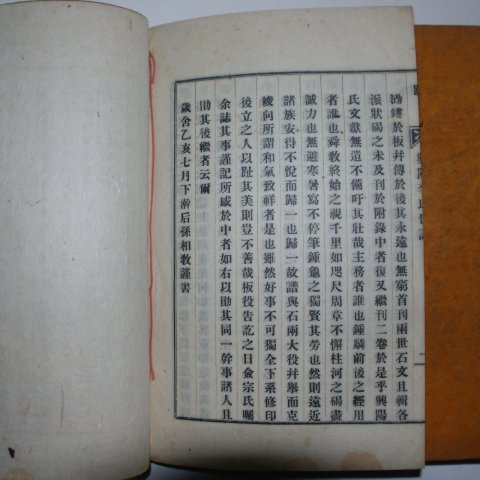 勒鏽於板幷傳於後其永遠也無窮首刊兩世石文且輯各
派狀碣之未及刊於附錄中者復又繼刊二卷於是乎興陽
氏文獻無遺不備吁其壯哉主務者誰也鍾麟前後之經用
者誰也舜敎終始之視千里如咫尺周章不懈柱河之碣盡
誠力也無避寒暑寫不停筆鍾龜之獨賢其勞也然則遠近
諸族安得不悅而歸一也歸一故譜與石兩大役幷擧而克
竣向所謂和氣致祥者是也雖然好事不可獨全下系修印
後立之人以趾其美則豈不善哉板役告訖之日僉宗氏囑
余誌其事謹記所感於中者如右以勖其同一幹事諸人且
勖其後繼者云爾
歲舍乙亥七月下澣后孫相敎謹書